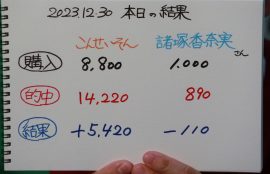 2023.12.30 本日の結果
こんせいそん 諸塚香奈実さん
購入 8,800 1,000
的中 14,220 890
結果 +5,420 -110